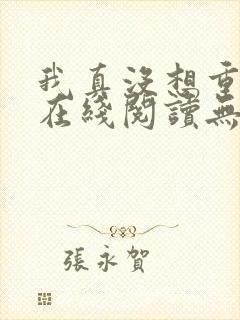 我真没想重
在綫閱讀無
張永賀